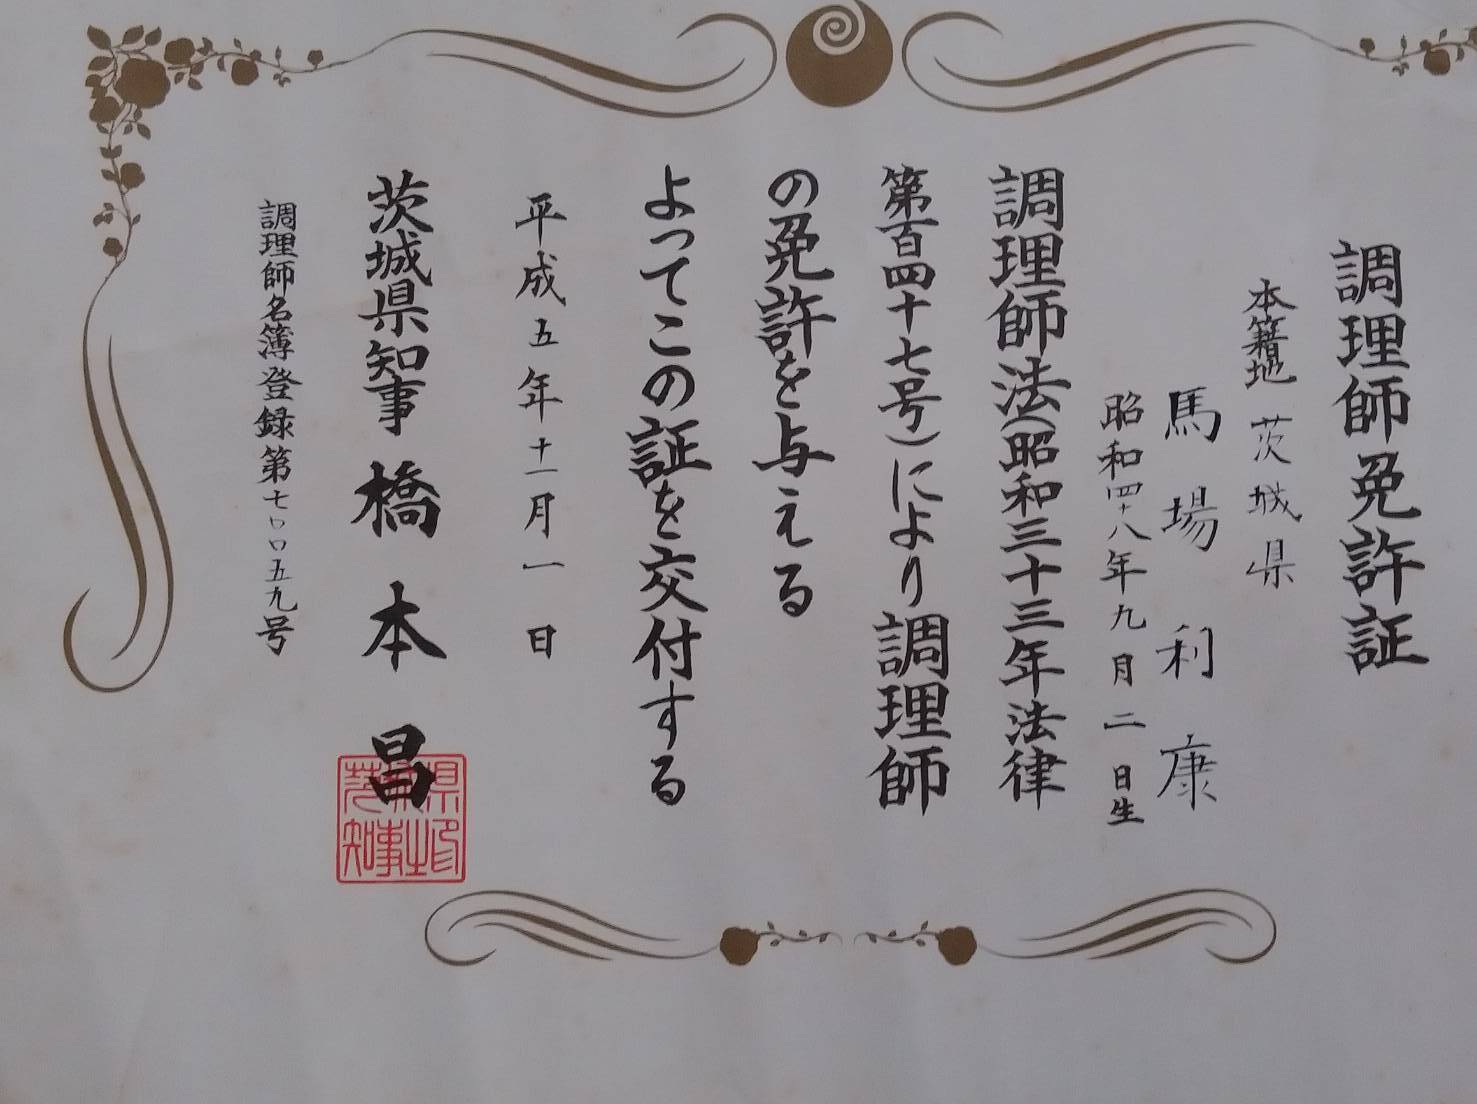 調理師免許証
本籍地 茨城県
馬場利康
昭和四十八年九月二日生
調理師法(昭和三十三年法律
第百四十七号)により調理師
の免許を与える
よってこの証を交付する
平成五年十一月一日
茨城県知事 橋本昌
調理師名簿登録第七〇〇五九号
茨城県知事之印